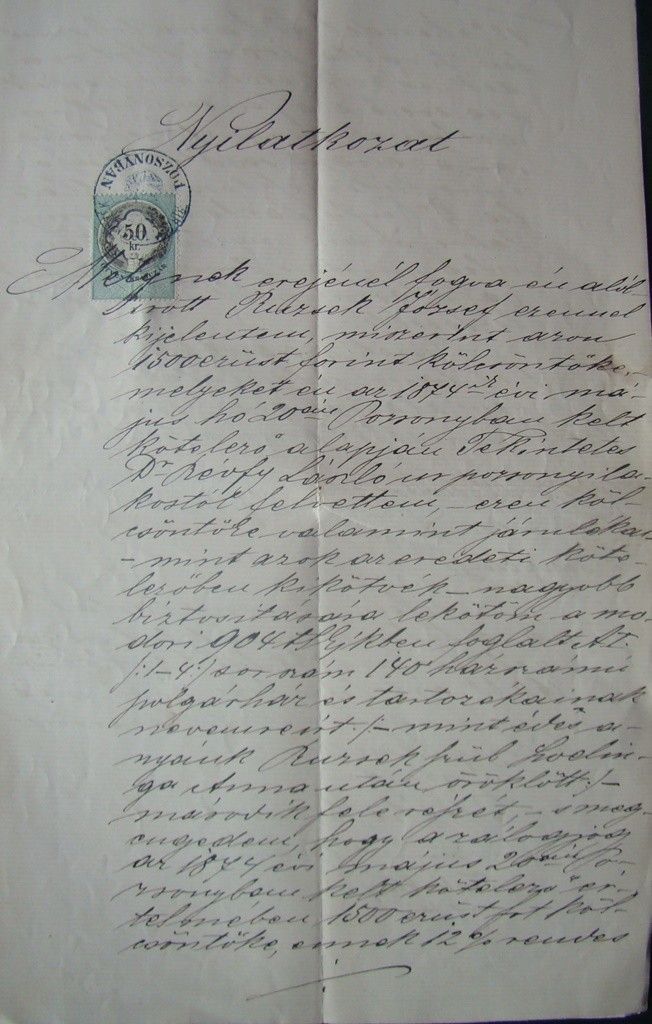 Nyilatkozat
POZSONYBAN
50
kr.
Melynek erejénél fogva én alól-
irott Ruzsek József ezennel
kijelentem, miszerint azon
1500 ezüst forint kölcsöntőke,
melyeket én az 1874ik évi má-
jus hó 20án Pozsonyban kelt
kötelező alapján Tekintetes
Dr László ur pozsonyi la-
kostól felvettem, – ezen köl-
csöntőke valamint járulékai
– mint azok az eredeti köte-
lezőben kikötvék – nagyobb
biztositására lekötöm a mo-
dori 904 tjkben foglalt A.I.
/:1–4:/ sorszám 140 házszámú
polgárház és tartozékainak
nevemreirt /:– mint édes a-
nyánk Ruzsek szül
Anna után öröklött :/–
második fele részét, – s meg-
engedem, hogy a zálogjog
az 1874 évi május 20án Po-
zsonyban kelt kötelező ér-
telmében 1500 ezüst frt köl-
csöntőke, ennek 12 % rendes